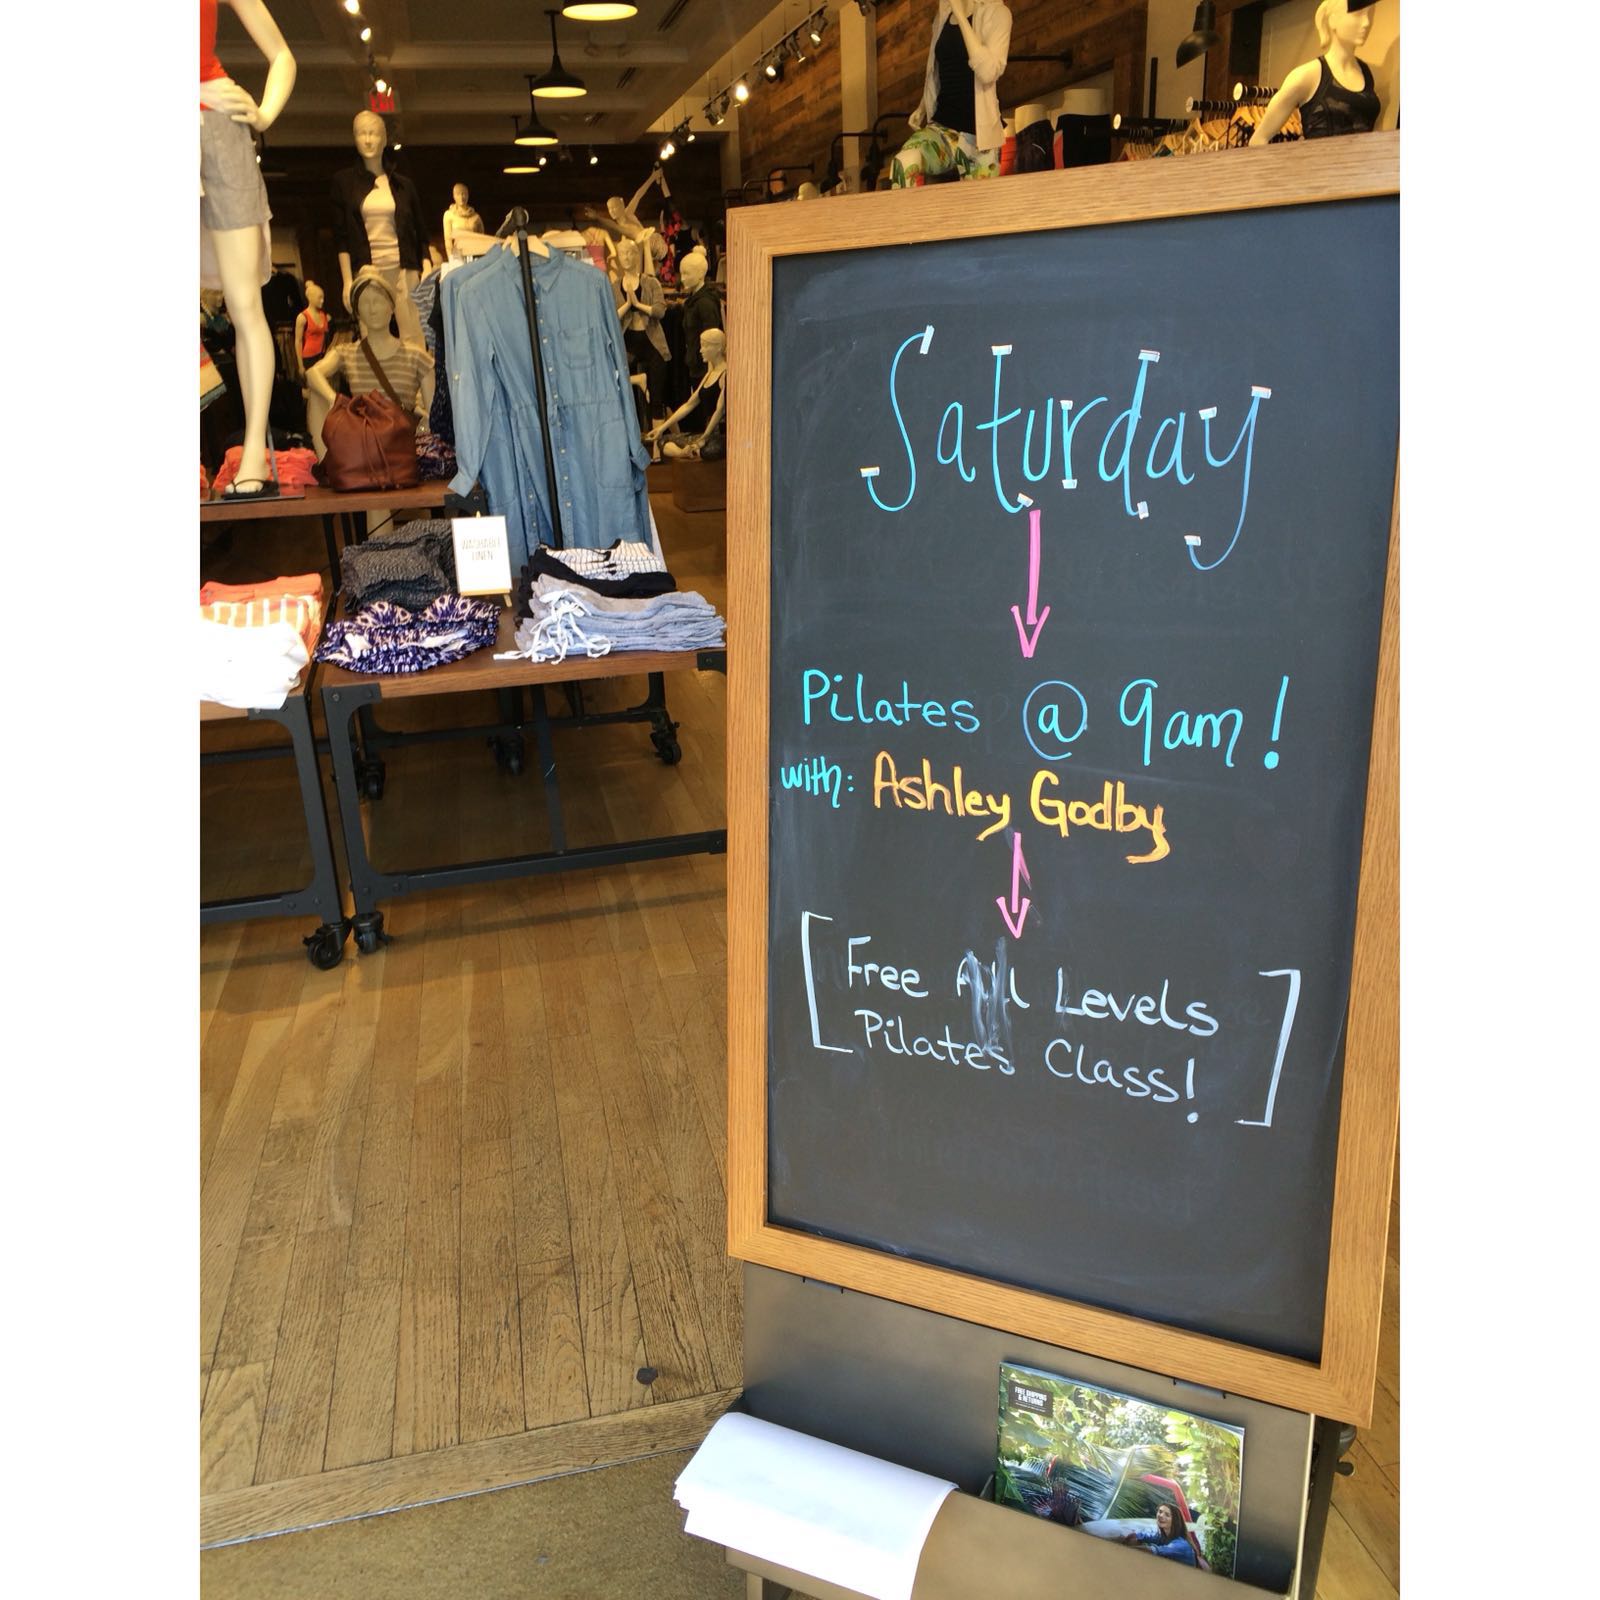 EXIT
WASHABLE
LINEN
Saturday
Pilates @ 9am!
with: Ashley Godby
[Free All Levels
Pilates Class!]
FREE SHIPPING
& RETURNS